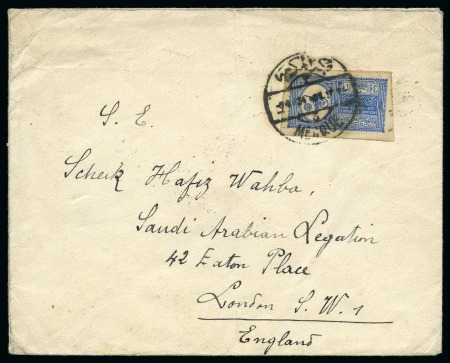 S. E.
Scheik Hafiz Wahba,
Saudi Arabian Legation
42 Eaton Place
London S. W. 1
England